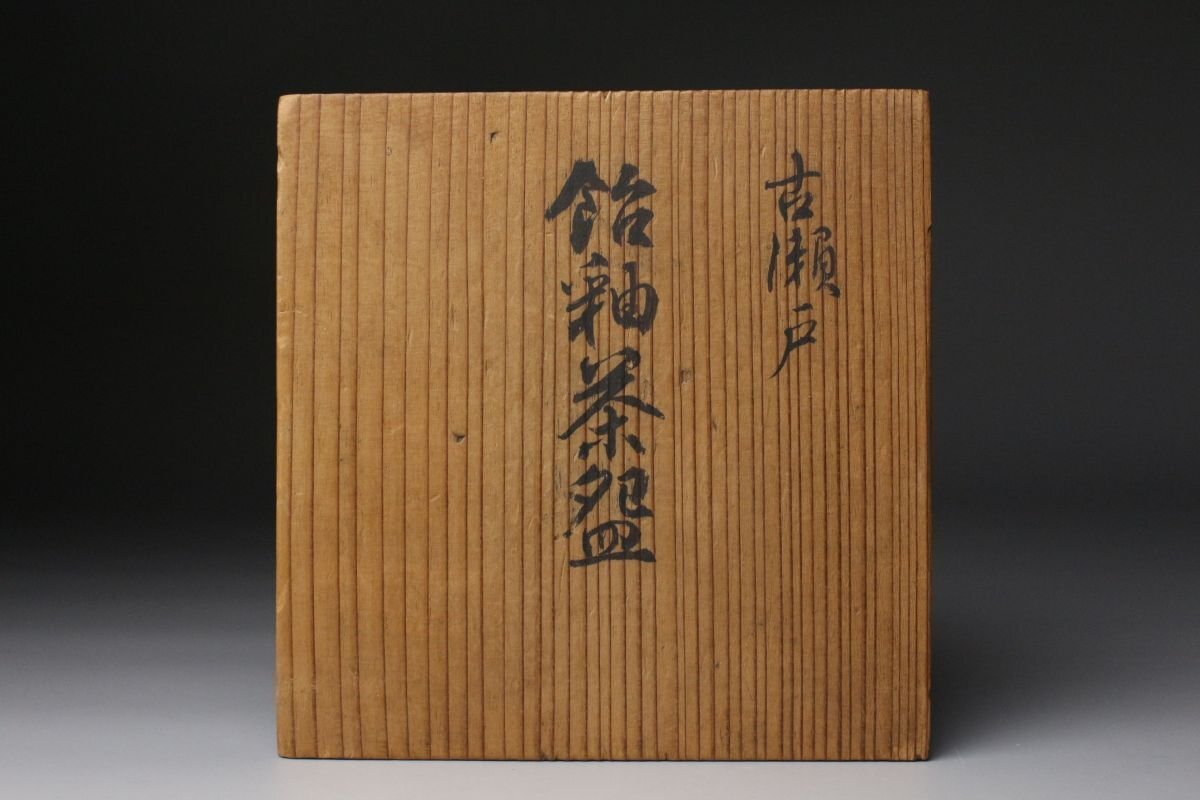 古瀬戸
飴釉茶盌